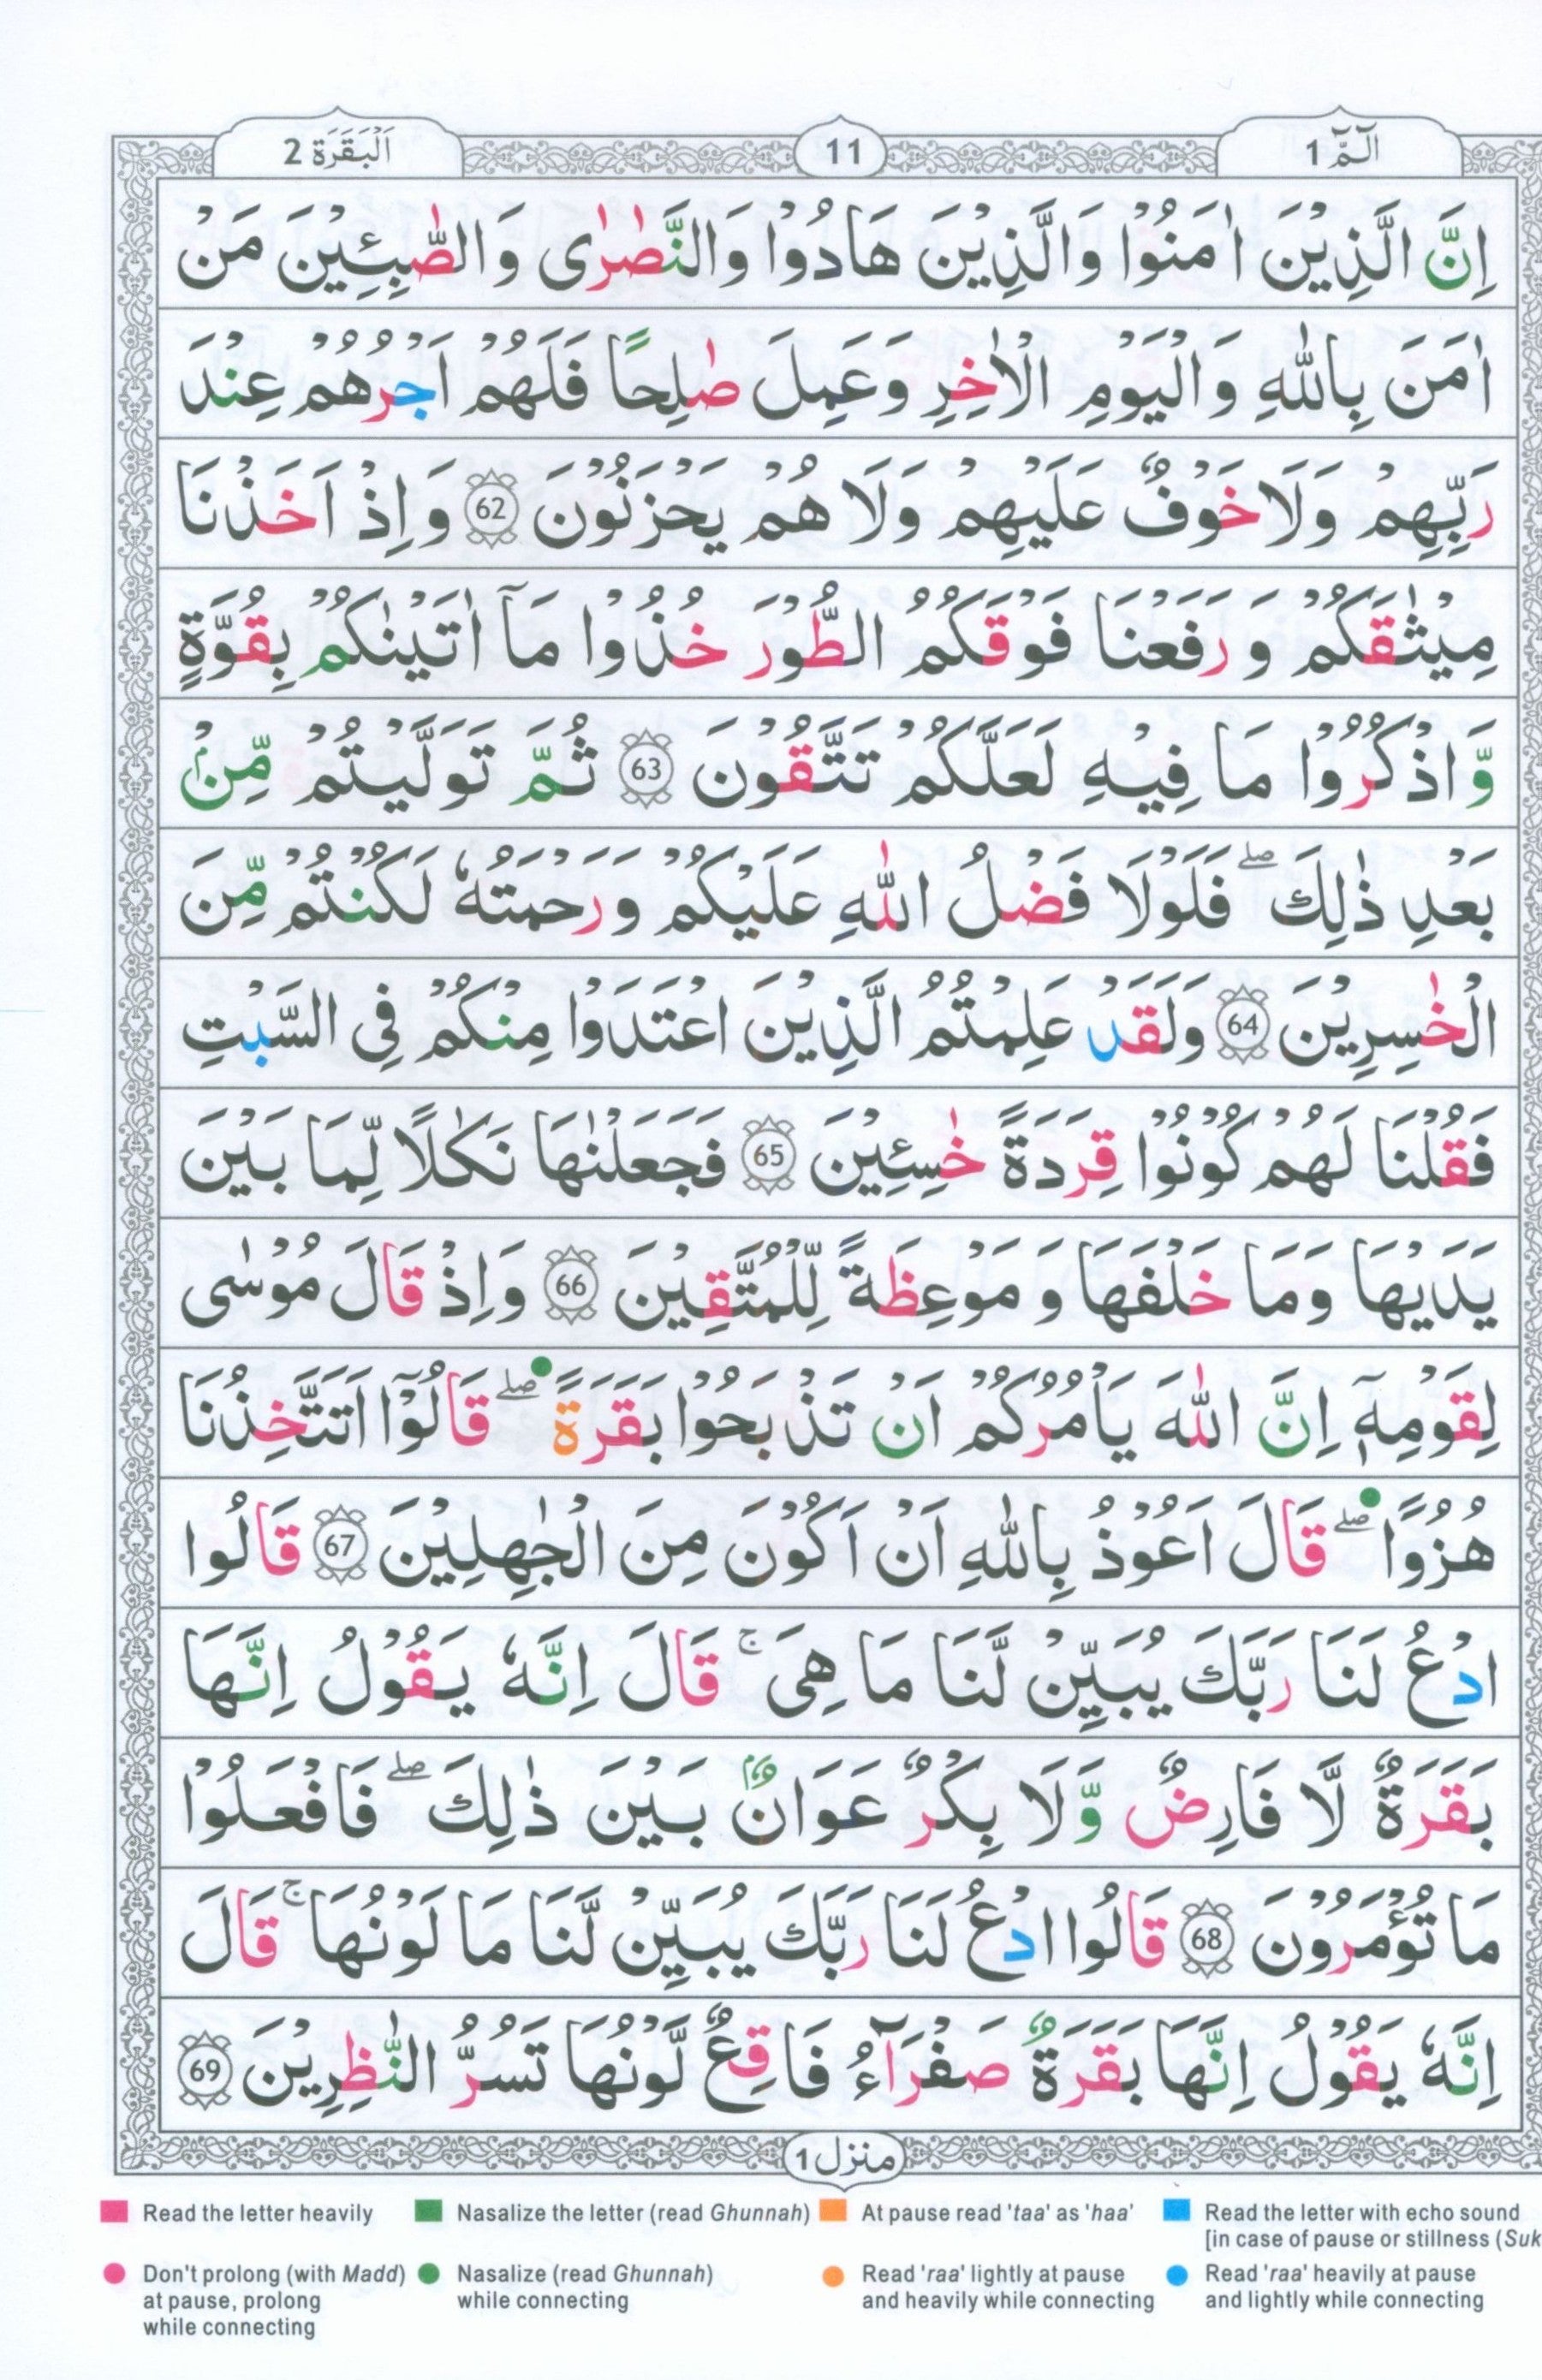 الٓمّٓ 1
11
اَلْبَقَرَة 2
اِنَّ الَّذِيْنَ اٰمَنُوْا وَالَّذِيْنَ هَادُوْا وَالنَّصٰرٰى وَالصّٰبِـِٕيْنَ مَنْ
اٰمَنَ بِاللّٰهِ وَالْيَوْمِ الْاٰخِرِ وَعَمِلَ صٰلِحًا فَلَهُمْ اَجْرُهُمْ عِنْدَ
رَبِّهِمْ وَلَا خَوْفٌ عَلَيْهِمْ وَلَا هُمْ يَحْزَنُوْنَ 62 وَاِذْ اَخَذْنَا
مِيْثٰقَكُمْ وَرَفَعْنَا فَوْقَكُمُ الطُّوْرَ خُذُوْا مَآ اٰتَيْنٰكُمْ بِقُوَّةٍ
وَّاذْكُرُوْا مَا فِيْهِ لَعَلَّكُمْ تَتَّقُوْنَ 63 ثُمَّ تَوَلَّيْتُمْ مِّنْۢ
بَعْدِ ذٰلِكَ ۖ فَلَوْلَا فَضْلُ اللّٰهِ عَلَيْكُمْ وَرَحْمَتُهٗ لَكُنْتُمْ مِّنَ
الْخٰسِرِيْنَ 64 وَلَقَدْ عَلِمْتُمُ الَّذِيْنَ اعْتَدَوْا مِنْكُمْ فِى السَّبْتِ
فَقُلْنَا لَهُمْ كُوْنُوْا قِرَدَةً خٰسِـِٕيْنَ 65 فَجَعَلْنٰهَا نَكٰلًا لِّمَا بَيْنَ
يَدَيْهَا وَمَا خَلْفَهَا وَمَوْعِظَةً لِّلْمُتَّقِيْنَ 66 وَاِذْ قَالَ مُوْسٰى
لِقَوْمِهٖٓ اِنَّ اللّٰهَ يَاْمُرُكُمْ اَنْ تَذْبَحُوْا بَقَرَةً ۖ قَالُوْٓا اَتَتَّخِذُنَا
هُزُوًا ۖ قَالَ اَعُوْذُ بِاللّٰهِ اَنْ اَكُوْنَ مِنَ الْجٰهِلِيْنَ 67 قَالُوا
ادْعُ لَنَا رَبَّكَ يُبَيِّنْ لَّنَا مَا هِىَ ۚ قَالَ اِنَّهٗ يَقُوْلُ اِنَّهَا
بَقَرَةٌ لَّا فَارِضٌ وَّلَا بِكْرٌ عَوَانٌۢ بَيْنَ ذٰلِكَ ۖ فَافْعَلُوْا
مَا تُؤْمَرُوْنَ 68 قَالُوا ادْعُ لَنَا رَبَّكَ يُبَيِّنْ لَّنَا مَا لَوْنُهَا ۚ قَالَ
اِنَّهٗ يَقُوْلُ اِنَّهَا بَقَرَةٌ صَفْرَآءُ فَاقِعٌ لَّوْنُهَا تَسُرُّ النّٰظِرِيْنَ 69
منزل 1
Read the letter heavily
Nasalize the letter (read Ghunnah)
At pause read 'taa' as 'haa'
Read the letter with echo sound
[in case of pause or stillness (Suk
Don't prolong (with Madd)
at pause, prolong
while connecting
Nasalize (read Ghunnah)
while connecting
Read 'raa' lightly at pause
and heavily while connecting
Read 'raa' heavily at pause
and lightly while connecting